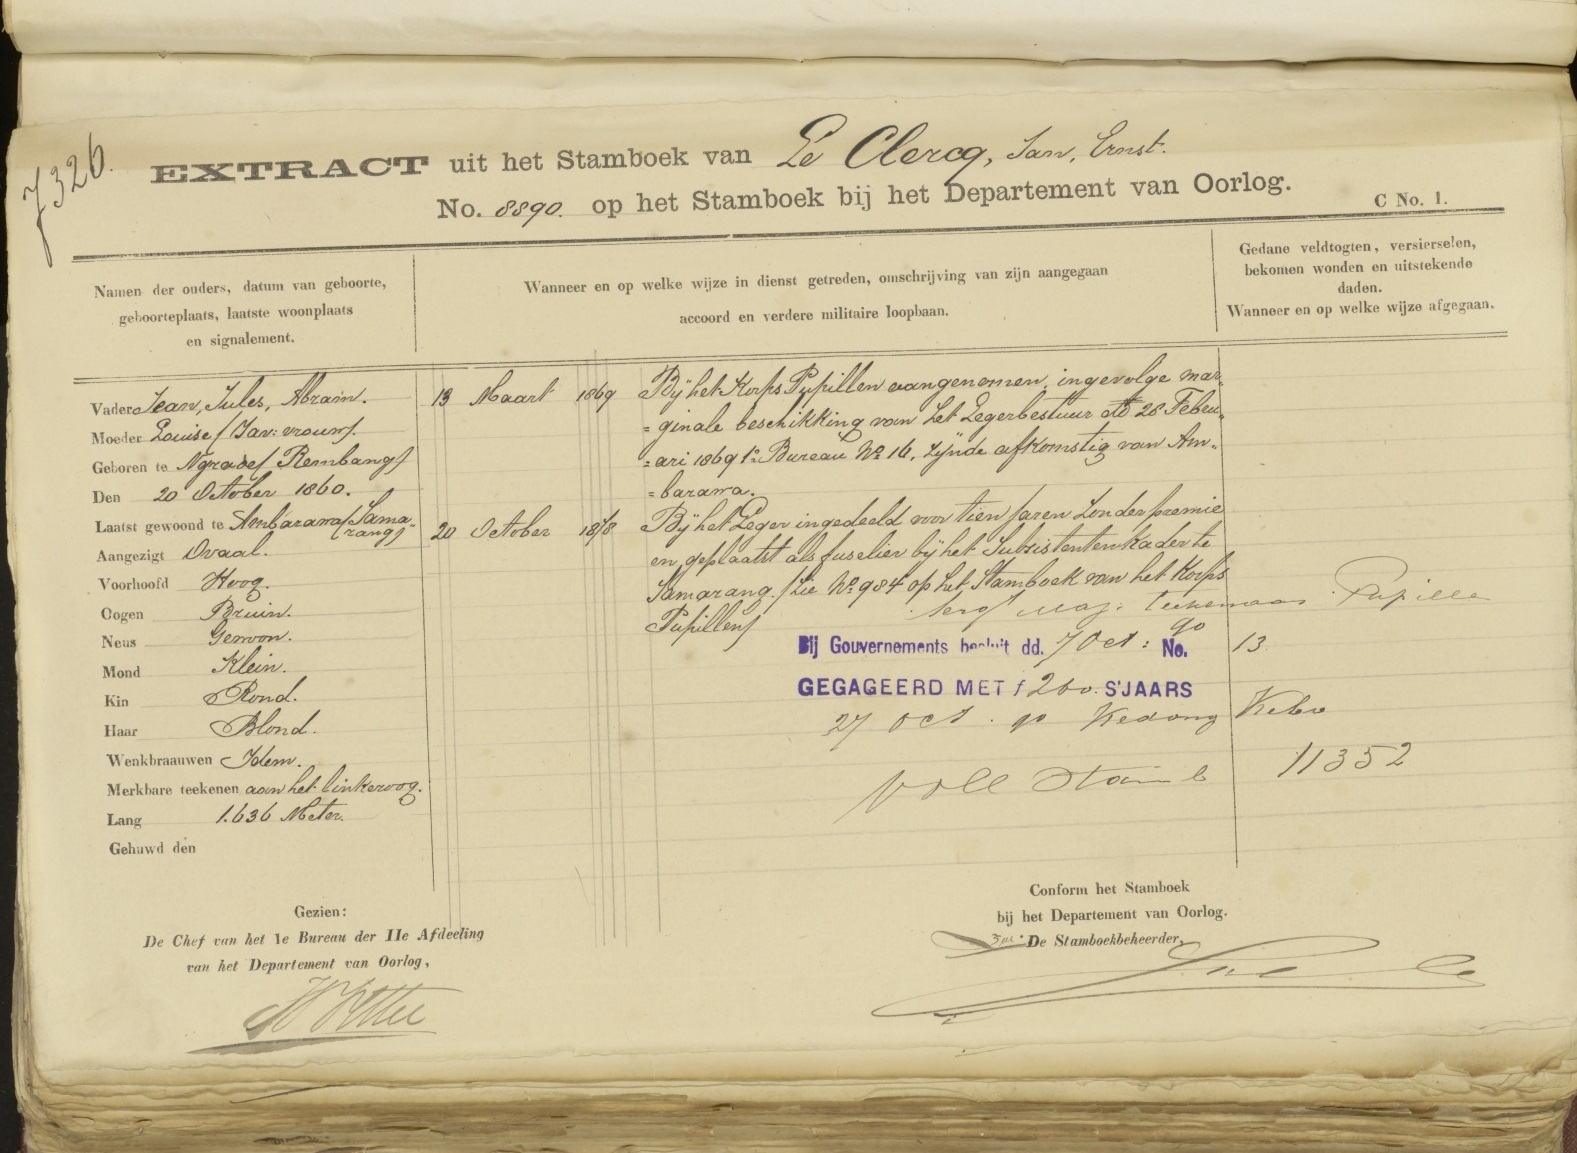 7326.
EXTRACT uit het Stamboek van Le Clercq, Jan, Ernst.
No. 8890. op het Stamboek bij het Departement van Oorlog.
C No. 1.
Namen der ouders, datum van geboorte,
geboorteplaats, laatste woonplaats
en signalement.
Wanneer en op welke wijze in dienst getreden, omschrijving van zijn aangegaan
accoord en verdere militaire loopbaan.
Gedane veldtogten, versierselen,
bekomen wonden en uitstekende
daden.
Wanneer en op welke wijze afgegaan.
Vader Jean, Jules, Abram.
Moeder Louise (Jav: vrouw).
Geboren te Ngrade (Rembang)
Den 20 October 1860.
Laatst gewoond te Ambarawa (Sama-
rang)
Aangezigt Ovaal.
Voorhoofd Hoog.
Oogen Bruin.
Neus Gewoon.
Mond Klein.
Kin Rond.
Haar Blond.
Wenkbraauwen Idem.
Merkbare teekenen aan het linkeroog.
Lang 1.636 Meter.
Gehuwd den
13 Maart 1869 Bij het Korps Pupillen aangenomen, ingevolge mar-
=ginale beschikking van het Legerbestuur dd 28 Febru-
=ari 1869 1e Bureau No 16, zijnde afkomstig van Am-
=barawa.
20 October 1878 Bij het Leger ingedeeld voor tien jaren zonder premie
en geplaatst als fuselier bij het Subsistentenkader te
Samarang. (Zie No 984 op het Stamboek van het Korps
Pupillen)
Serg Maj: Pupille
Bij Gouvernements besluit dd. 7 Oct: 90 No. 13
GEGAGEERD MET f 260. S'JAARS
27 Oct. 90 Kedong Kebo
Voll Stamb 11352
Gezien:
De Chef van het 1e Bureau der IIe Afdeeling
van het Departement van Oorlog,
Conform het Stamboek
bij het Departement van Oorlog.
De Stamboekbeheerder,